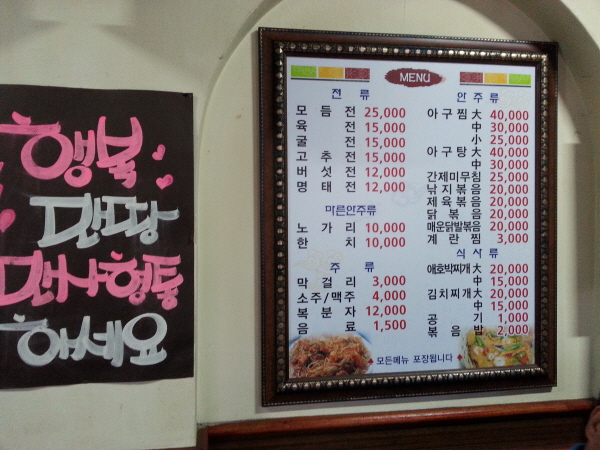 행복
만땅
만사형통
하세요
MENU
전 류
모 듬 전 25,000
육 전 15,000
굴 전 15,000
고 추 전 15,000
버 섯 전 12,000
명 태 전 12,000
마른안주류
노 가 리 10,000
한 치 10,000
주 류
막 걸 리 3,000
소주/맥주 4,000
복 분 자 12,000
음 료 1,500
안 주 류
아 구 찜 大 40,000
中 30,000
小 25,000
아 구 탕 大 40,000
中 30,000
간제미무침 25,000
낙 지 볶 음 20,000
제 육 볶 음 20,000
닭 볶 음 20,000
매운닭발볶음 20,000
계 란 찜 3,000
식 사 류
애호박찌개 大 20,000
中 15,000
김 치 찌 개 大 20,000
中 15,000
공 기 1,000
볶 음 밥 2,000
모든메뉴 포장됩니다